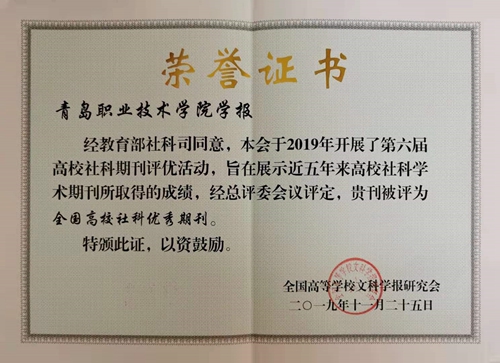 荣誉证书
青岛职业技术学院学报
经教育部社科司同意，本会于2019年开展了第六届
高校社科期刊评优活动，旨在展示近五年来高校社科学
术期刊所取得的成绩，经总评委会议评定，贵刊被评为
全国高校社科优秀期刊。
特颁此证，以资鼓励。
全国高等学校文科学报研究会
二〇一九年十一月二十五日